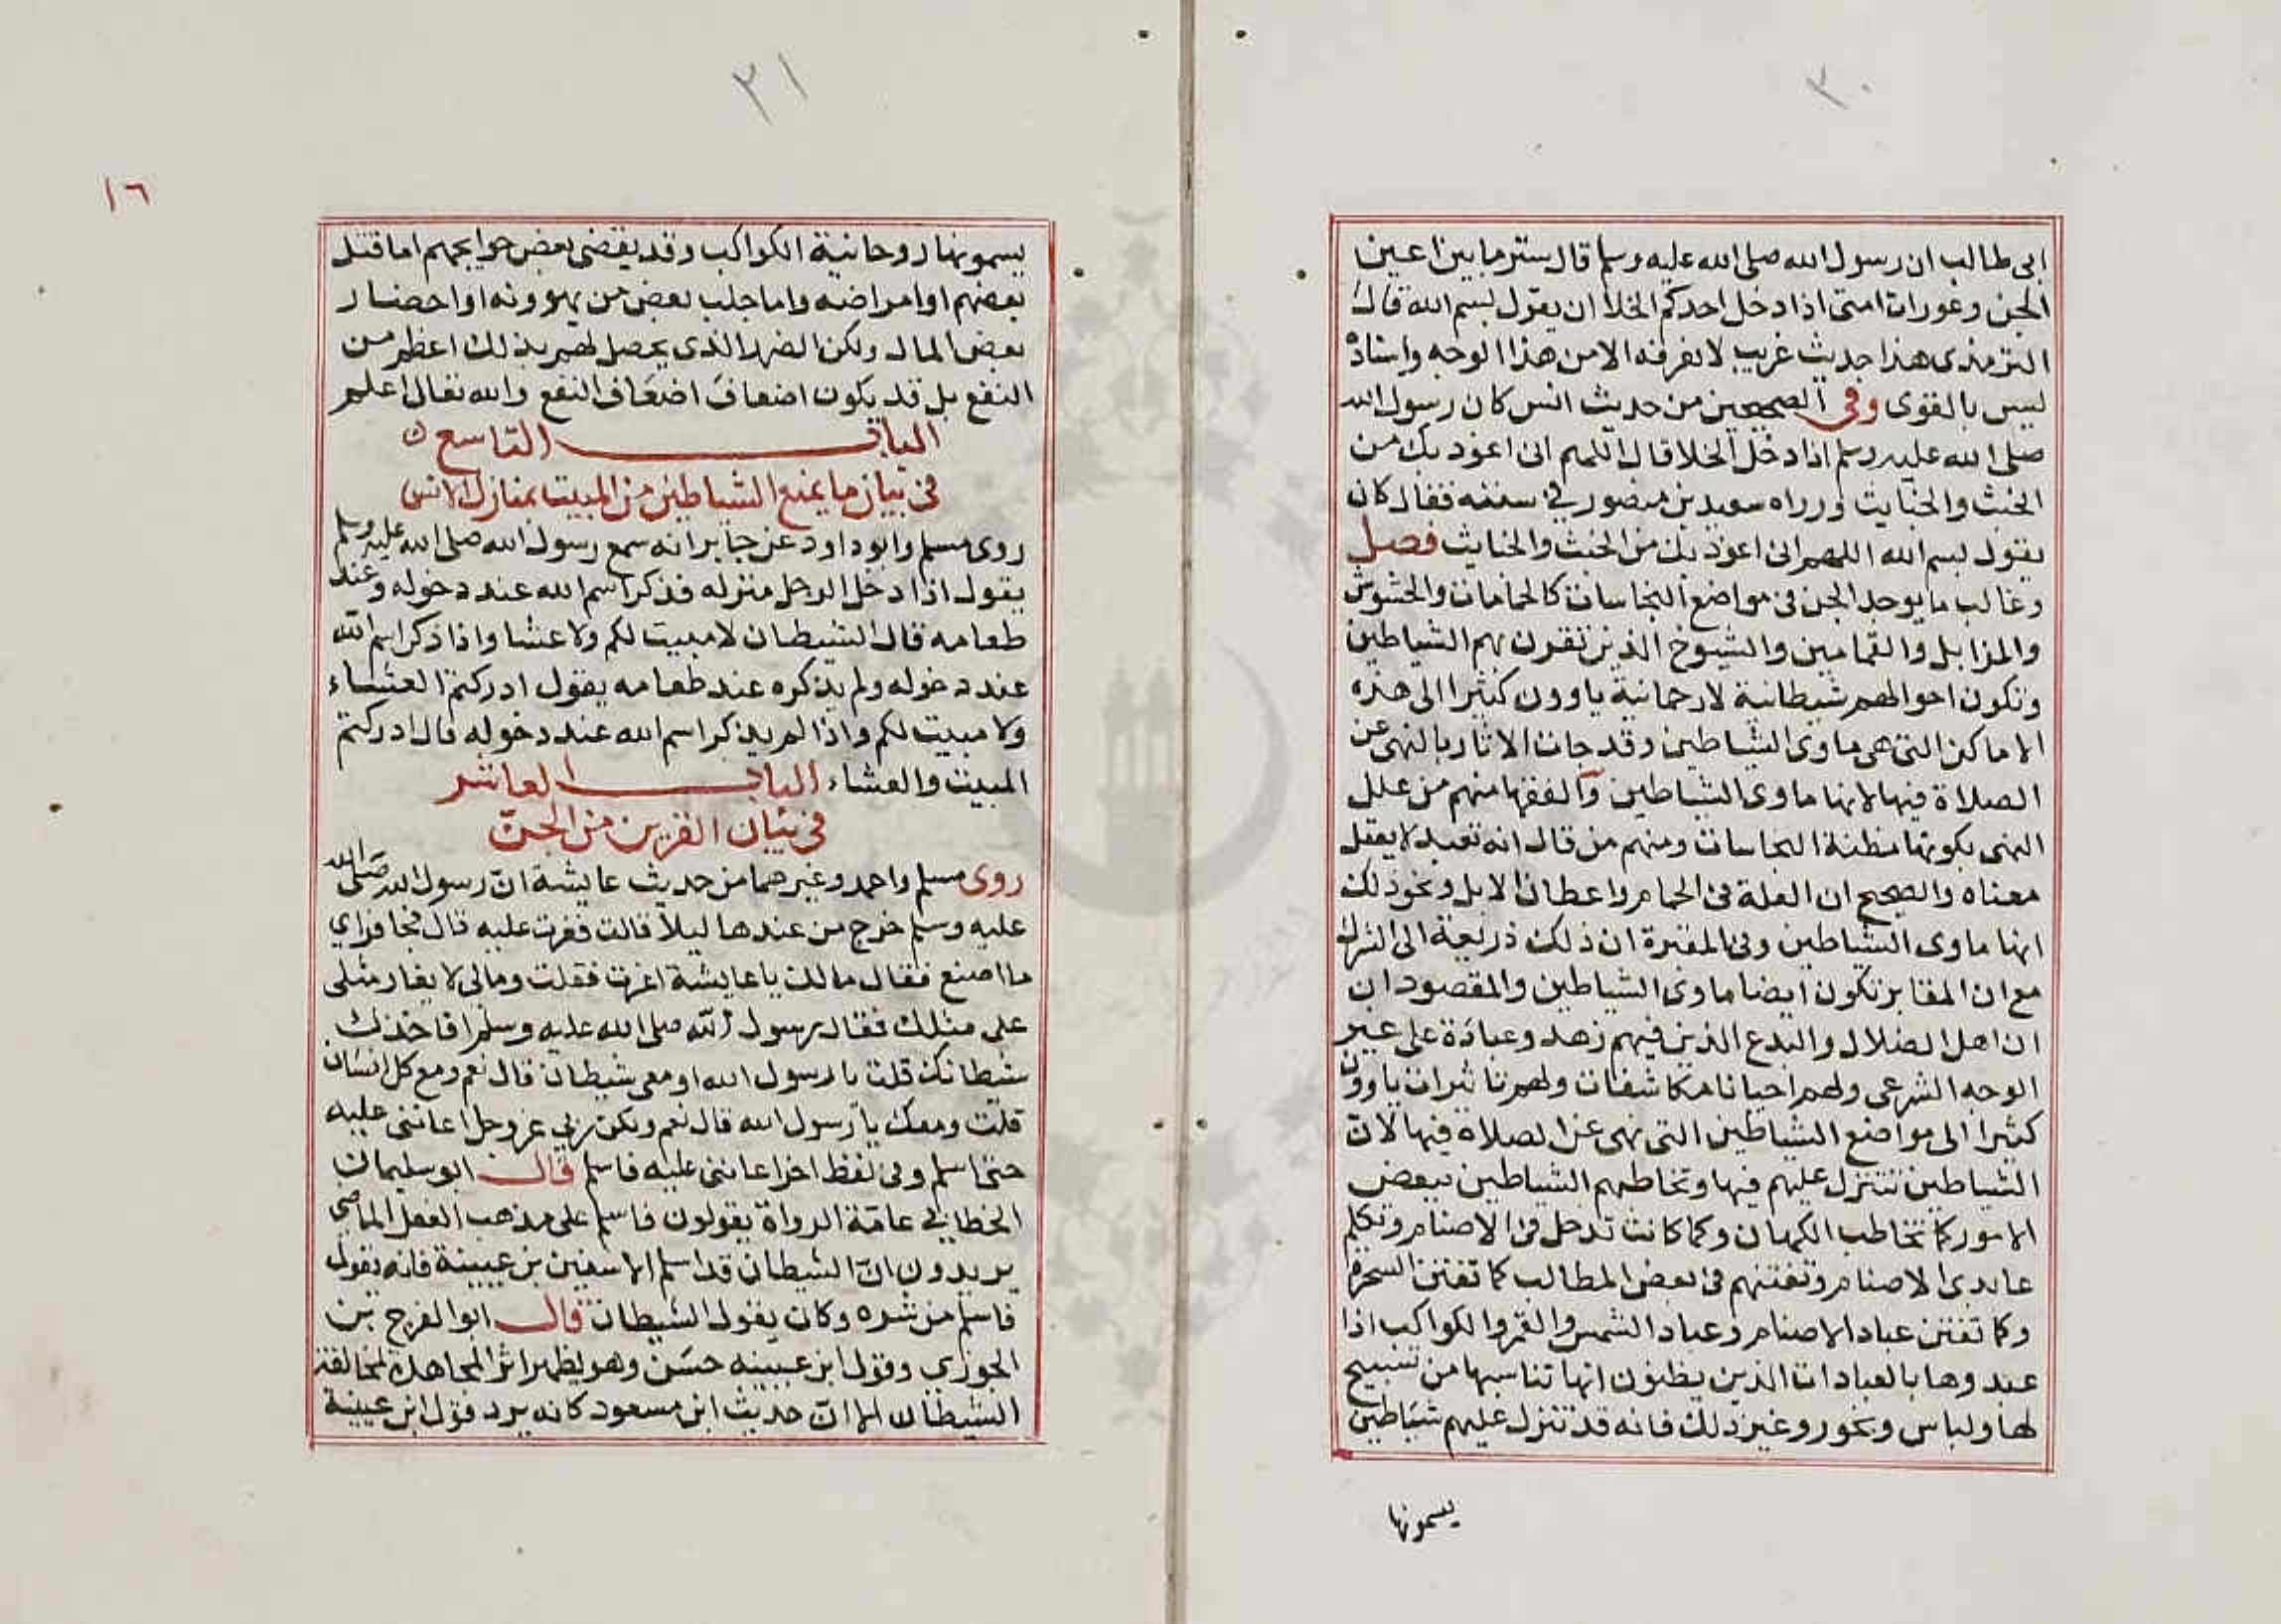 ٣٠
ابى طالب ان رسول الله صلى الله عليه وسلم قال ستر ما بين اعين
الجن وعورات امتى اذا دخل احدكم الخلا ان يقول بسم الله قال
الترمذى هذا حديث غريب لا نعرفه الا من هذا الوجه واسناده
ليس بالقوى وفى الصحيحين من حديث انس كان رسول الله
صلى الله عليه وسلم اذا دخل الخلا قال اللهم انى اعوذ بك من
الخبث والخبايث ورواه سعيد بن منصور في سننه فقال كان
يقول بسم الله اللهم انى اعوذ بك من الخبث والخبايث فصل
وغالب ما يوجد الجن فى مواضع النجاسات كالحمامات والحشوش
والمزابل والقمامين والشيوخ الذين تقرن بهم الشياطين
وتكون احوالهم شيطانية لا رحمانية ياوون كثيرا الى هذه
الاماكن التى هى ماوى الشياطين وقد جات الاثار بالنهى عن
الصلاة فيها لانها ماوى الشياطين والفقها منهم من علل
النهى بكونها مظنة النجاسات ومنهم من قال انه تعبد لا يعقل
معناه والصحيح ان العلة فى الحمام واعطان الابل ونحو ذلك
انها ماوى الشياطين وفى المقبرة ان ذلك ذريعة الى الشرك
مع ان المقابر تكون ايضا ماوى الشياطين والمقصود ان
ان اهل الضلال والبدع الذين فيهم زهد وعبادة على غير
الوجه الشرعى ولهم احيانا مكاشفات ولهم تاثيرات ياوون
كثيرا الى مواضع الشياطين التى نهى عن الصلاة فيها لان
الشياطين تتنزل عليهم فيها وتخاطبهم الشياطين ببعض
الامور كما تخاطب الكهان وكما كانت تدخل فى الاصنام وتكلم
عابدى الاصنام وتفتنهم فى بعض المطالب كما تفتن السحرة
وكما تفتن عباد الاصنام وعباد الشمس والقمر والكواكب اذا
عبدوها بالعبادات الذين يظنون انها تناسبها من تسبيح
لها ولباس وبخور وغير ذلك فانه قد تنزل عليهم شياطين
يسمونها
٣١
١٦
يسمونها روحانية الكواكب وقد يقضى بعض حوايجهم اما قتل
بعضهم او امراضه واما جلب بعض من يهوونه او احضار
بعض المال ولكن الضرر الذى يحصل لهم بذلك اعظم من
النفع بل قد يكون اضعاف اضعاف النفع والله تعالى اعلم
الباب التاسع
فى بيان ما يمنع الشياطين من المبيت بمنازل الانس
روى مسلم وابو داود عن جابر انه سمع رسول الله صلى الله عليه وسلم
يقول اذا دخل الرجل منزله فذكر اسم الله عند دخوله وعند
طعامه قال الشيطان لا مبيت لكم ولا عشا واذا ذكر اسم الله
عند دخوله ولم يذكره عند طعامه يقول ادركتم العشاء
ولا مبيت لكم واذا لم يذكر اسم الله عند دخوله قال ادركتم
المبيت والعشاء الباب العاشر
فى بيان القرين من الجن
روى مسلم واحمد وغيرهما من حديث عايشة ان رسول الله صلى الله
عليه وسلم خرج من عندها ليلا قالت فغرت عليه قال فجا فراي
ما اصنع فقال مالك يا عايشة اغرت فقلت ومالى لا يغار مثلى
على مثلك فقال رسول الله صلى الله عليه وسلم افاخذك
شيطانك قلت يا رسول الله او معى شيطان قال نعم ومع كل انسان
قلت ومعك يا رسول الله قال نعم ولكن ربي عز وجل اعاننى عليه
حتى اسلم وفى لفظ اخر اعاننى عليه فاسلم قال ابو سليمان
الخطابي عامة الرواة يقولون فاسلم على مذهب الفعل الماضى
يريدون ان الشيطان قد اسلم الا سفين بن عيينة فانه يقول
فاسلم من شره وكان يقول الشيطان قال ابو الفرج بن
الجوزى وقول ابن عيينه حسن وهو يظهر اثر المجاهدة لمخالفة
الشيطان الا ان حديث ابن مسعود كانه يرد قول ابن عيينة